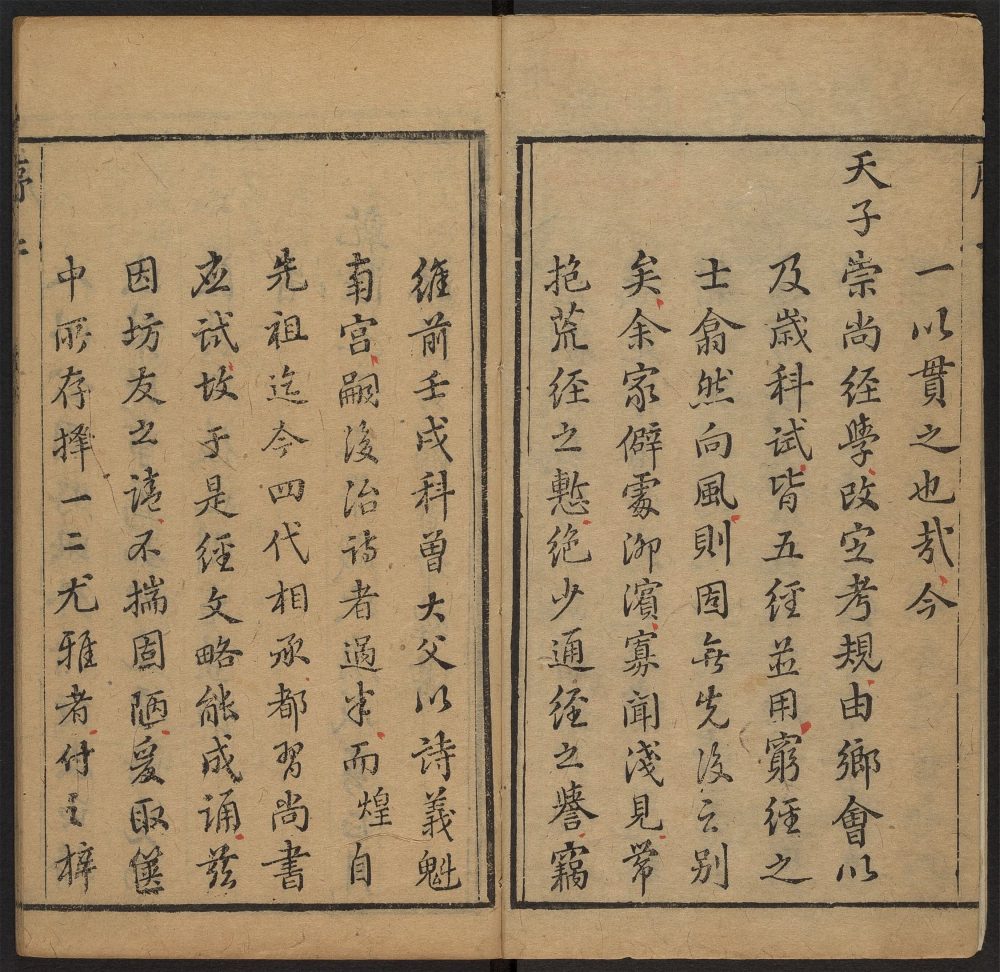 一以貫之也哉今
天子崇尚经學改定考規由鄉會以
及歲科試皆五經並用窮經之
士翕然向風則固無先後之别
矣余家僻處泖濱寡聞淺見常
抱荒经之慙绝少通经之譽竊
維前壬戌科曾大父以詩義魁
南宮嗣後治詩者過半而煌自
先祖迄今四代相承都習尚書
应試故于是經文略能成誦茲
因坊友之請不揣固陋爰取篋
中所存擇一二尤雅者付之梓
序